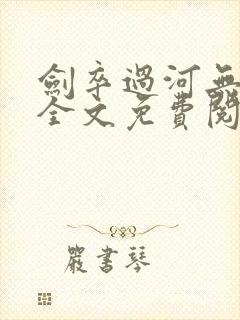 劍卒過河無
全文免費閱
嚴書琴